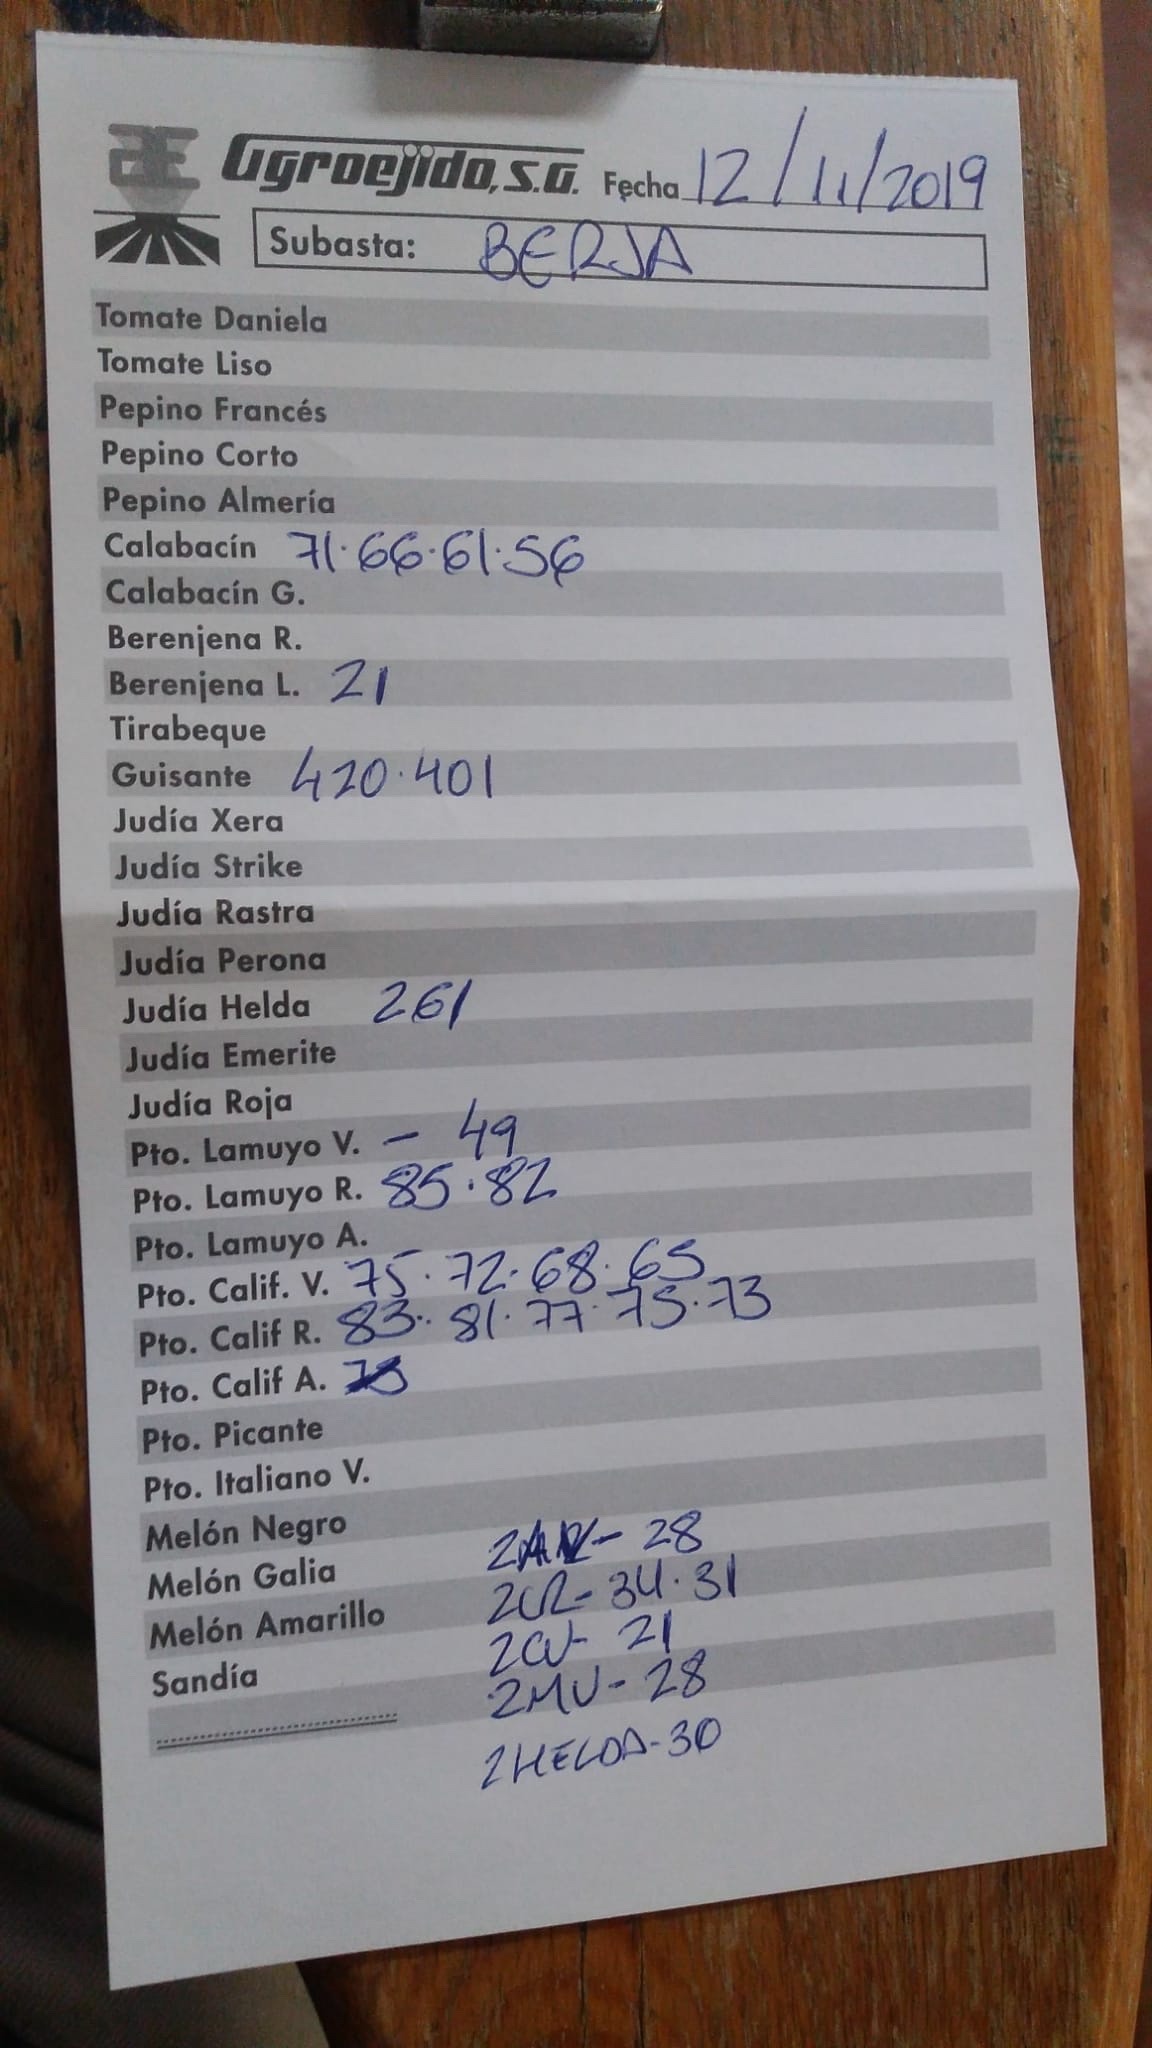 Agroejido, S.A. Fecha 12/11/2019
Subasta: BERJA
Tomate Daniela
Tomate Liso
Pepino Francés
Pepino Corto
Pepino Almería
Calabacín 71.66.61.56
Calabacín G.
Berenjena R.
Berenjena L. 21
Tirabeque
Guisante 420.401
Judía Xera
Judía Strike
Judía Rastra
Judía Perona
Judía Helda 261
Judía Emerite
Judía Roja
Pto. Lamuyo V. - 49
Pto. Lamuyo R. 85.82
Pto. Lamuyo A.
Pto. Calif. V. 75.72.68.65
Pto. Calif R. 83.81.77.75.73
Pto. Calif A.
Pto. Picante
Pto. Italiano V.
Melón Negro
28
Melón Galia
2CR- 34.31
Melón Amarillo
2CV- 21
Sandía
2MV- 28
2HELDA-30